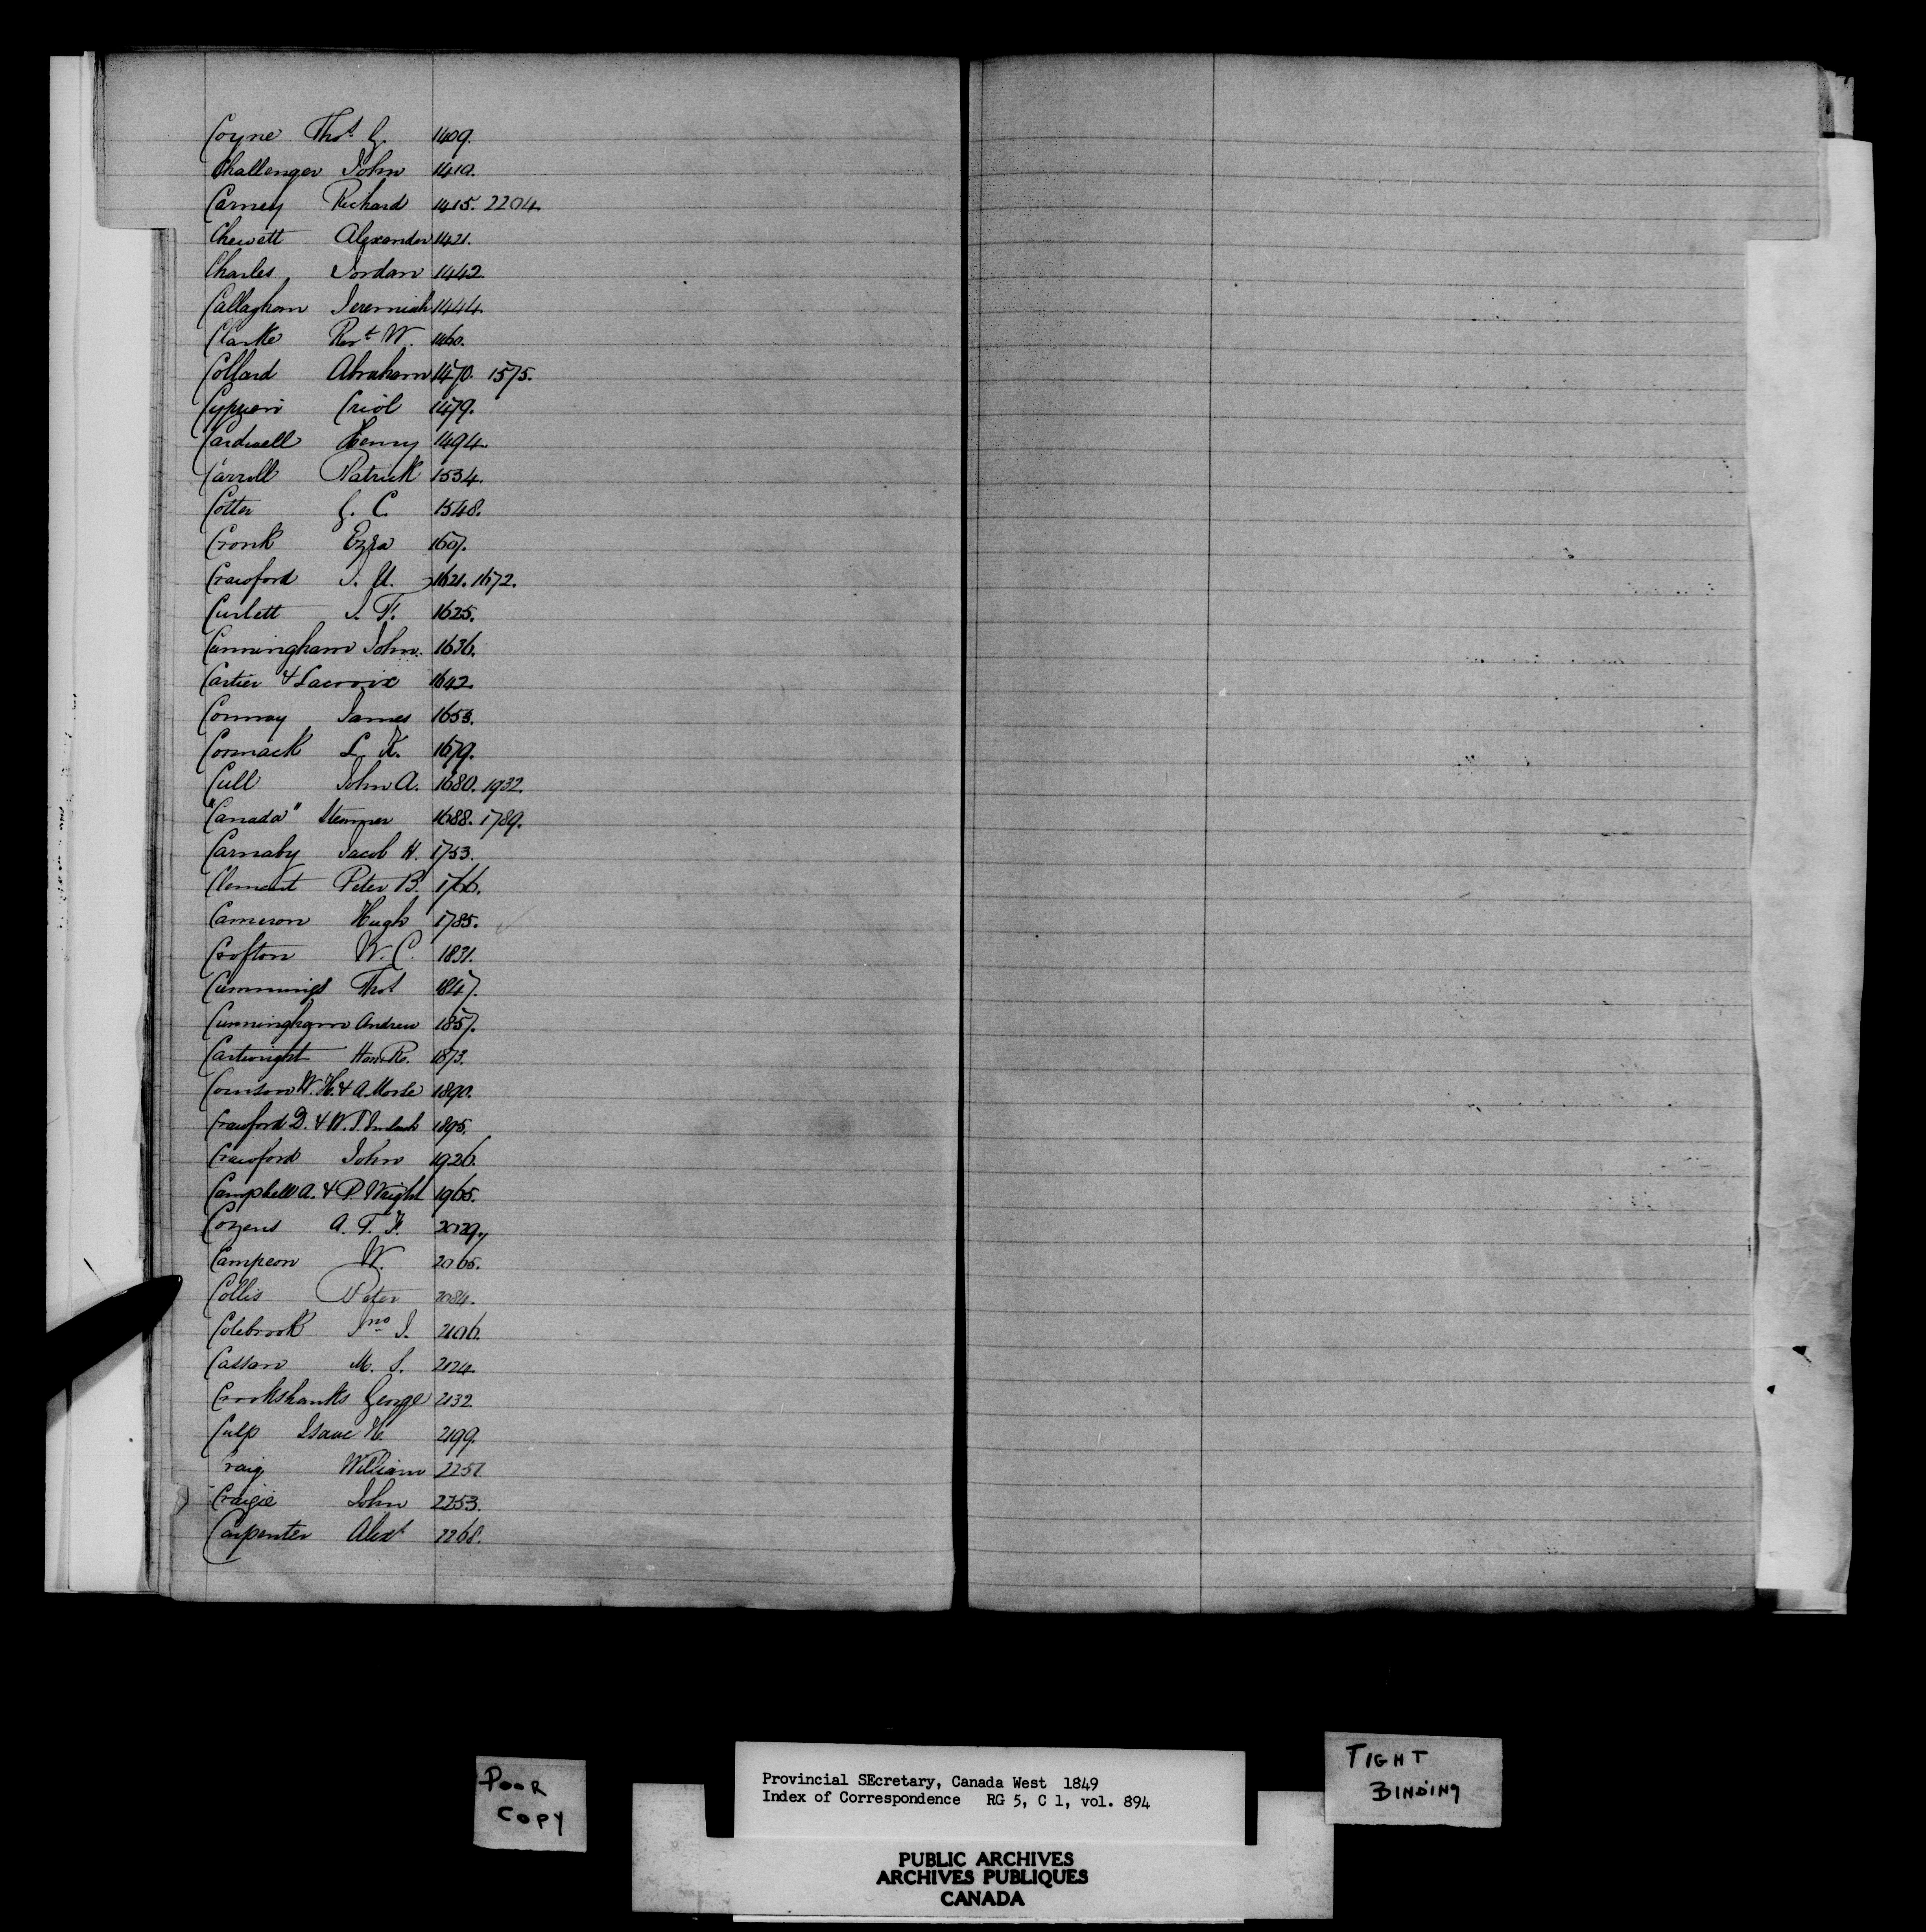 Coyne Thos G. 1409.
Challenger John 1410.
Carney Richard 1415. 2204.
Chewett Alexander 1421.
Charles Jordan 1442.
Callaghan Jeremiah 1444.
Clarke Revd W. 1460.
Collard Abraham 1470. 1575.
Cyprien Criol 1479.
Cardwell Henry 1494.
Carroll Patrick 1534.
Cotter G. C. 1548.
Cronk Ezra 1607.
Crawford J. U. 1621. 1672.
Curlett J. F. 1625.
Cunningham John. 1636.
Cartier & Lacroix 1642.
Conway James 1653.
Cormack L. K. 1679.
Cull John A. 1680. 1932.
"Canada" Steamer 1688. 1789.
Carnaby Jacob H. 1753.
Clement Peter B. 1766.
Cameron Hugh 1785.
Crofton W. C. 1831.
Cummings Thos 1847.
Cunningham Andrew 1857.
Cartwright Hon. 1873.
W. H. & A. Morse 1890.
Crawford D. & W. 1895.
Crawford John 1926.
Campbell A. & P. Wright 1965.
Cozens A. T. F. 2029.
Campeon W. 2065.
Collis Peter 2084.
Colebrook Jno J. 2106.
Cassan M. S. 2124.
Crookshanks George 2132
Culp Isaac H. 2199.
Craig William 2251
Craigie John 2253.
Carpenter Alexr 2268.
POOR
COPY
Provincial SEcretary, Canada West 1849
Index of Correspondence RG 5, C 1, vol. 894
TIGHT
BINDING
PUBLIC ARCHIVES
ARCHIVES PUBLIQUES
CANADA